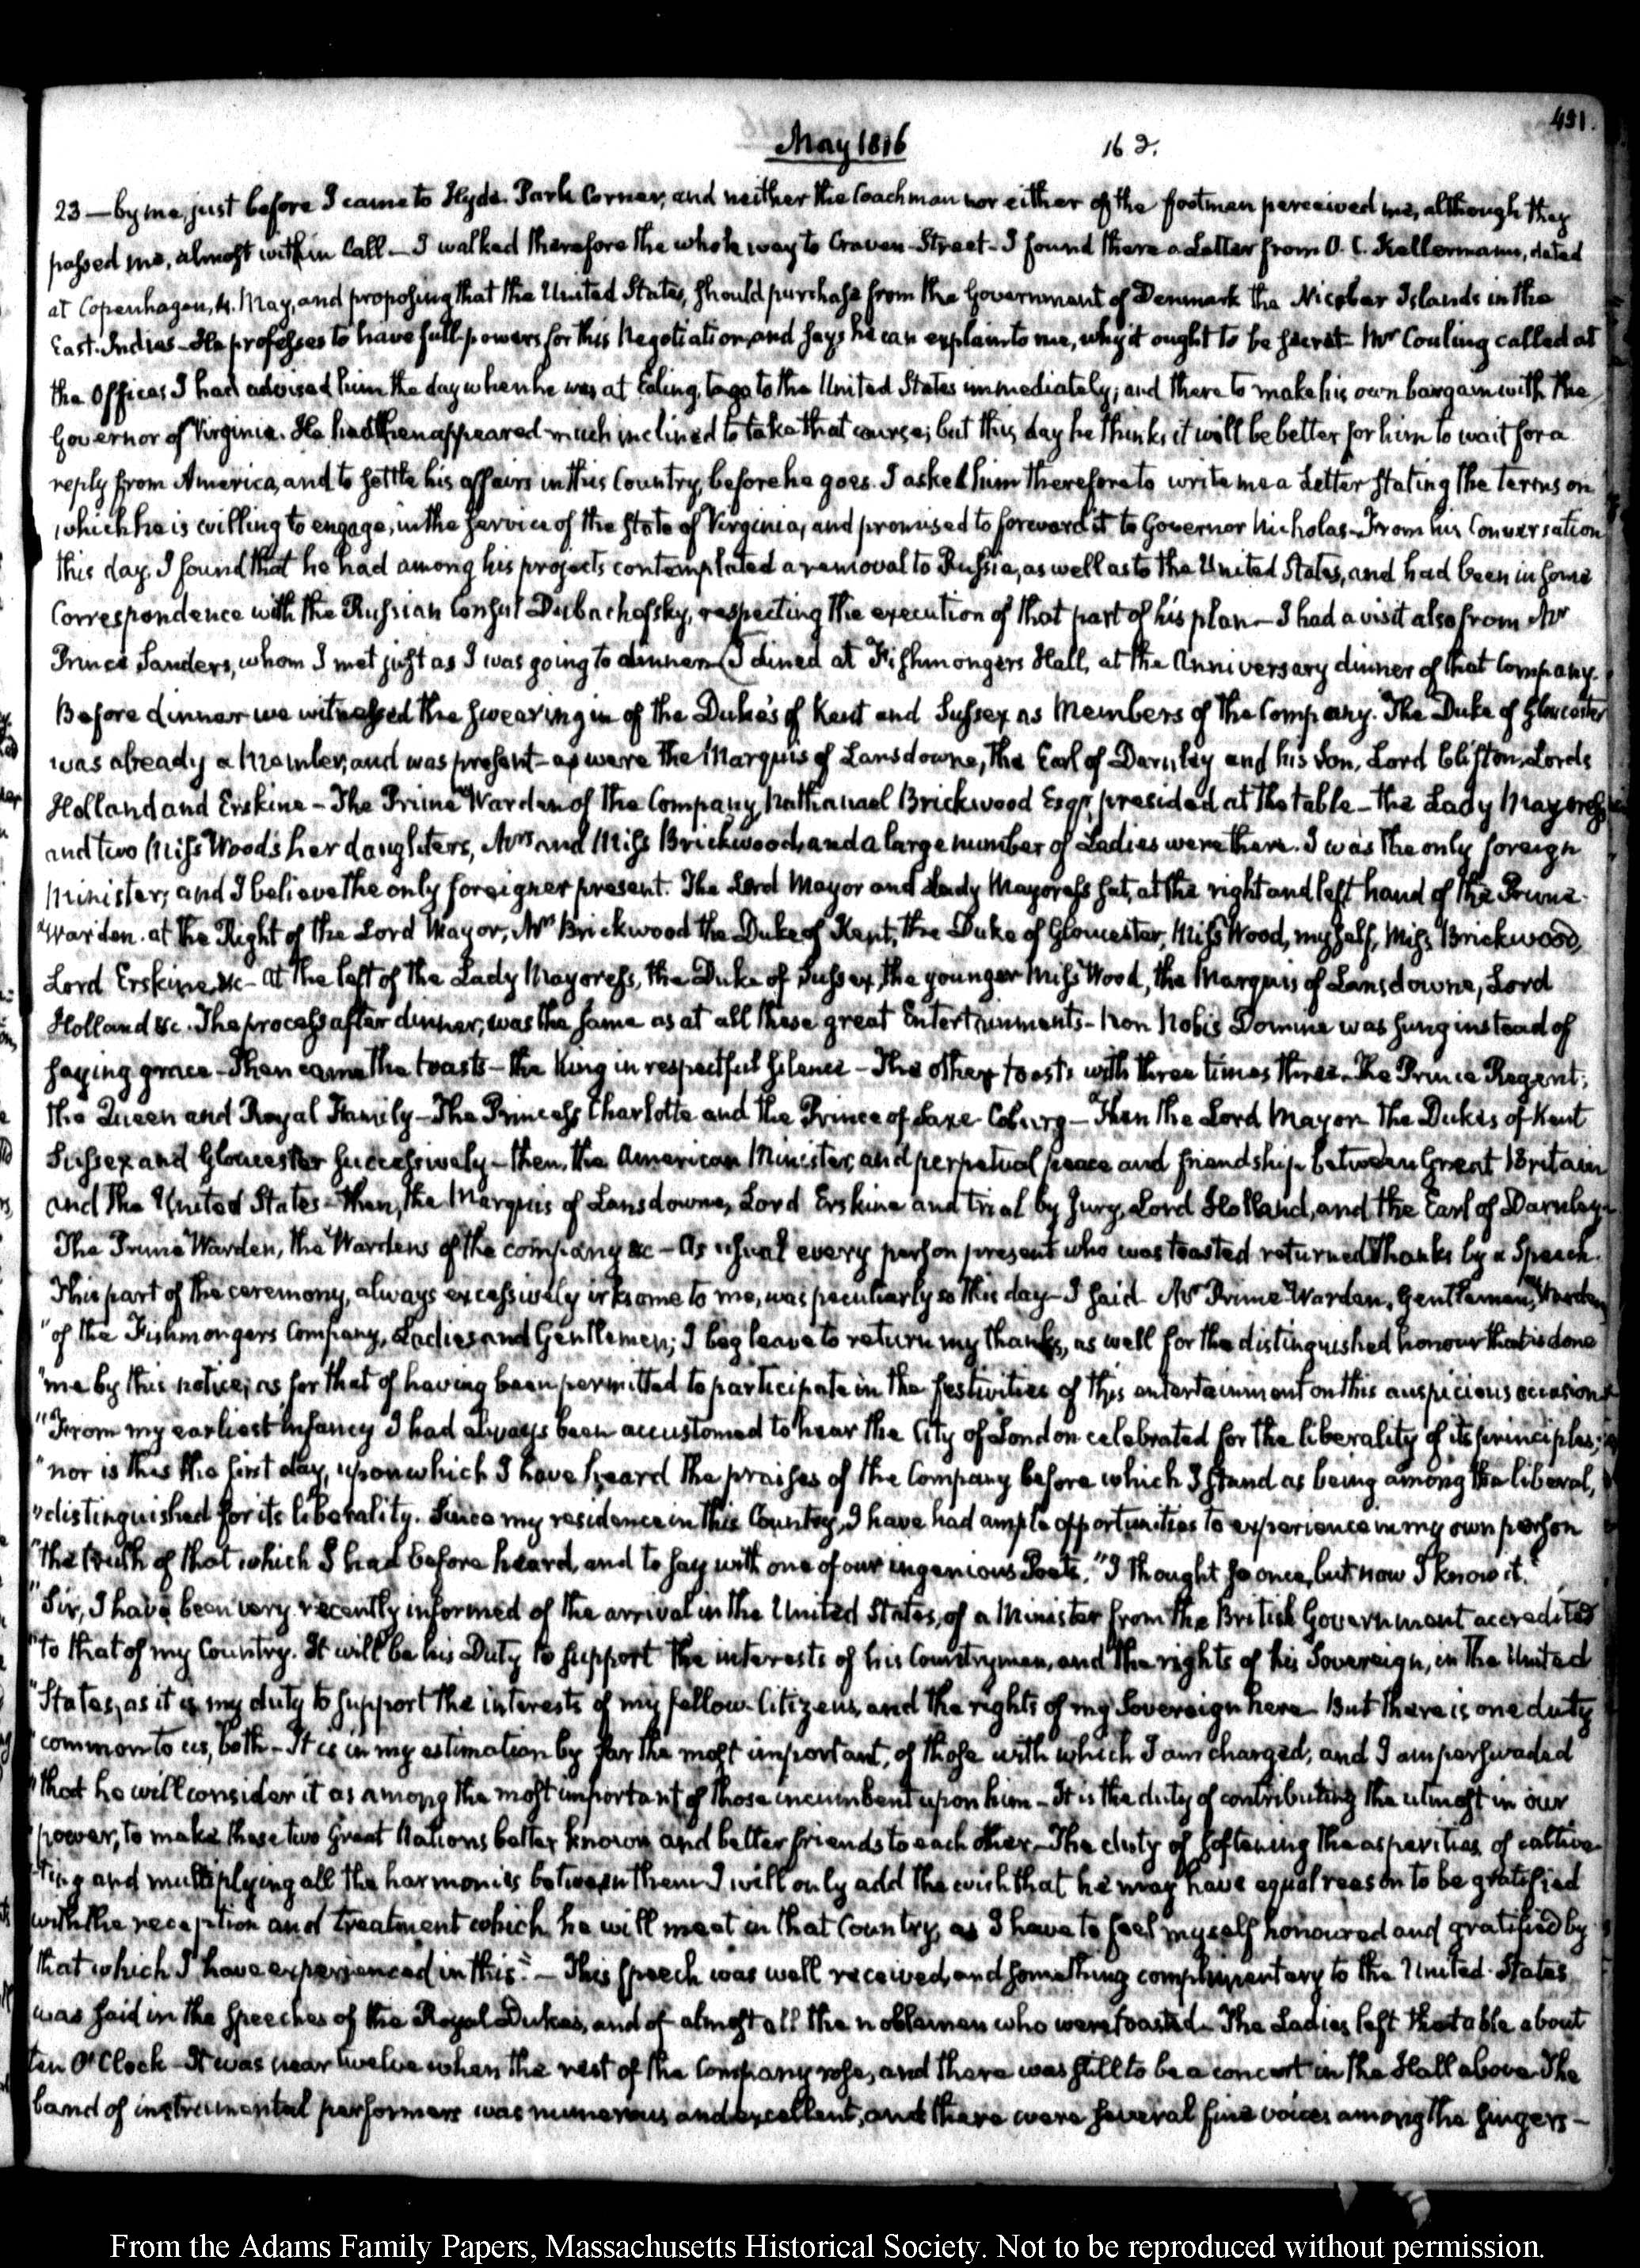 491.
May 1816
162.
23 — by me, just before I came to Hyde Park Corner, and neither the Coachman nor either of the footmen perceived me, although they
passed me, almost within Call — I walked therefore the whole way to Craven-Street — I found there a Letter from O. C. Kellermann, dated
at Copenhagen, 4. May, and proposing that the United States, should purchase from the Government of Denmark the Nicobar Islands in the
East-Indies — He professes to have full-powers for this Negotiation, and says he can explain to me, why it ought to be secret — Mr Couling called at
the Office. I had advised him the day when he was at Ealing, to go to the United States immediately; and there to make his own bargain with the
Governor of Virginia. He had then appeared much inclined to take that course; but this day he thinks it will be better for him to wait for a
reply from America, and to settle his affairs in this Country, before he goes. I asked him therefore to write me a Letter stating the terms on
which he is willing to engage, in the service of the State of Virginia, and promised to forward it to Governor Nicholas — From his Conversation
this day, I found that he had among his projects contemplated a removal to Russia, as well as to the United States, and had been in some
Correspondence with the Russian Consul Dubachefsky, respecting the execution of that part of his plan — I had a visit also from Mr
Prince Sanders, whom I met just as I was going to dinner — I dined at Fishmongers Hall, at the Anniversary dinner of that Company.
Before dinner we witnessed the swearing in of the Duke's of Kent and Sussex as Members of the Company. The Duke of Gloucester
was already a Member, and was present — as were the Marquis of Lansdowne, the Earl of Darnley and his Son, Lord Clifton, Lords
Holland and Erskine — The Prime Warden of the Company, Nathanael Brickwood Esqr, presided at the table — the Lady Mayoress
and two Miss Woods her daughters, Mrs and Miss Brickwood, and a large number of Ladies were there. I was the only foreign
Minister, and I believe the only foreigner present. The Lord Mayor and Lady Mayoress sat, at the right and left hand of the Prime
Warden. at the Right of the Lord Mayor, Mrs Brickwood the Duke of Kent, the Duke of Gloucester, Miss Wood, myself, Miss Brickwood,
Lord Erskine, &c — at the left of the Lady Mayoress, the Duke of Sussex, the younger Miss Wood, the Marquis of Lansdowne, Lord
Holland &c. The process after dinner, was the same as at all these great Entertainments — Non Nobis Domine was sung instead of
saying grace — Then came the toasts — the King in respectful silence — The other toasts with three times three. The Prince Regent;
the Queen and Royal Family — The Princess Charlotte and the Prince of Saxe-Coburg — Then the Lord Mayor — The Dukes of Kent
Sussex and Gloucester successively — then, the American Minister, and perpetual peace and friendship between Great Britain
and the United States — then, the Marquis of Lansdowne, Lord Erskine and trial by Jury, Lord Holland, and the Earl of Darnley —
The Prime Warden, the Wardens of the company &c — As usual every person present who was toasted returned thanks by a Speech.
This part of the ceremony, always excessively irksome to me, was peculiarly so this day — I said "Mr Prime Warden, Gentlemen, Wardens
"of the Fishmongers Company, Ladies and Gentlemen; I beg leave to return my thanks, as well for the distinguished honour that is done
"me by this notice; as for that of having been permitted to participate in the festivities of this entertainment on this auspicious occasion.
"From my earliest Infancy I had always been accustomed to hear the City of London celebrated for the liberality of its principles;
"nor is this the first day, upon which I have heard the praises of the Company before which I stand as being among the liberal,
"distinguished for its liberality. Since my residence in this Country, I have had ample opportunities to experience in my own person
"the truth of that which I had before heard, and to say with one of our ingenious Poets, "I thought so once, but now I know it."
"Sir, I have been very recently informed of the arrival in the United States, of a Minister from the British Government accredited
"to that of my Country. It will be his Duty to support the interests of his Countrymen, and the rights of his Sovereign, in the United
"States, as it is my duty to support the interests of my fellow-Citizens, and the rights of my Sovereign here — But there is one duty
"common to us, both — It is in my estimation by far the most important, of those with which I am charged; and I am perswaded
"that he will consider it as among the most important of those incumbent upon him — It is the duty of contributing the utmost in our
"power, to make these two Great Nations better known and better friends to each other — The duty of softening the asperities, of cultiva-
"ting and multiplying all the harmonies between them — I will only add the wish that he may have equal reason to be gratified
with the reception and treatment which he will meet in that Country, as I have to feel myself honoured and gratified by
that which I have experienced in this." — This speech was well received, and something complimentary to the United States
was said in the speeches of the Royal Dukes, and of almost all the noblemen who were toasted — The Ladies left the table about
ten O'Clock — It was near twelve when the rest of the Company rose, and there was still to be a concert in the Hall above — The
band of instrumental performers was numerous and excellent, and there were several fine voices among the singers —
From the Adams Family Papers, Massachusetts Historical Society. Not to be reproduced without permission.